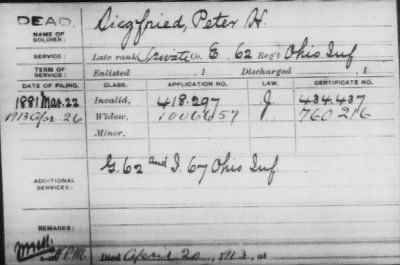 DEAD.
NAME OF SOLDIER: Siegfried, Peter H.
SERVICE: Late rank Private Co. E, 62 Reg't Ohio Inf
TERM OF SERVICE: Enlisted , 1 Discharged , 1
DATE OF FILING. CLASS. APPLICATION NO. LAW. CERTIFICATE NO.
1881 Mar. 22 Invalid, 418.297 J 434.437
1913 Apr 26 Widow, 1006657 760216
Minor.
ADDITIONAL SERVICES: G. 62 and I. 67 Ohio Inf
REMARKS:
Died April 20, 1913, at